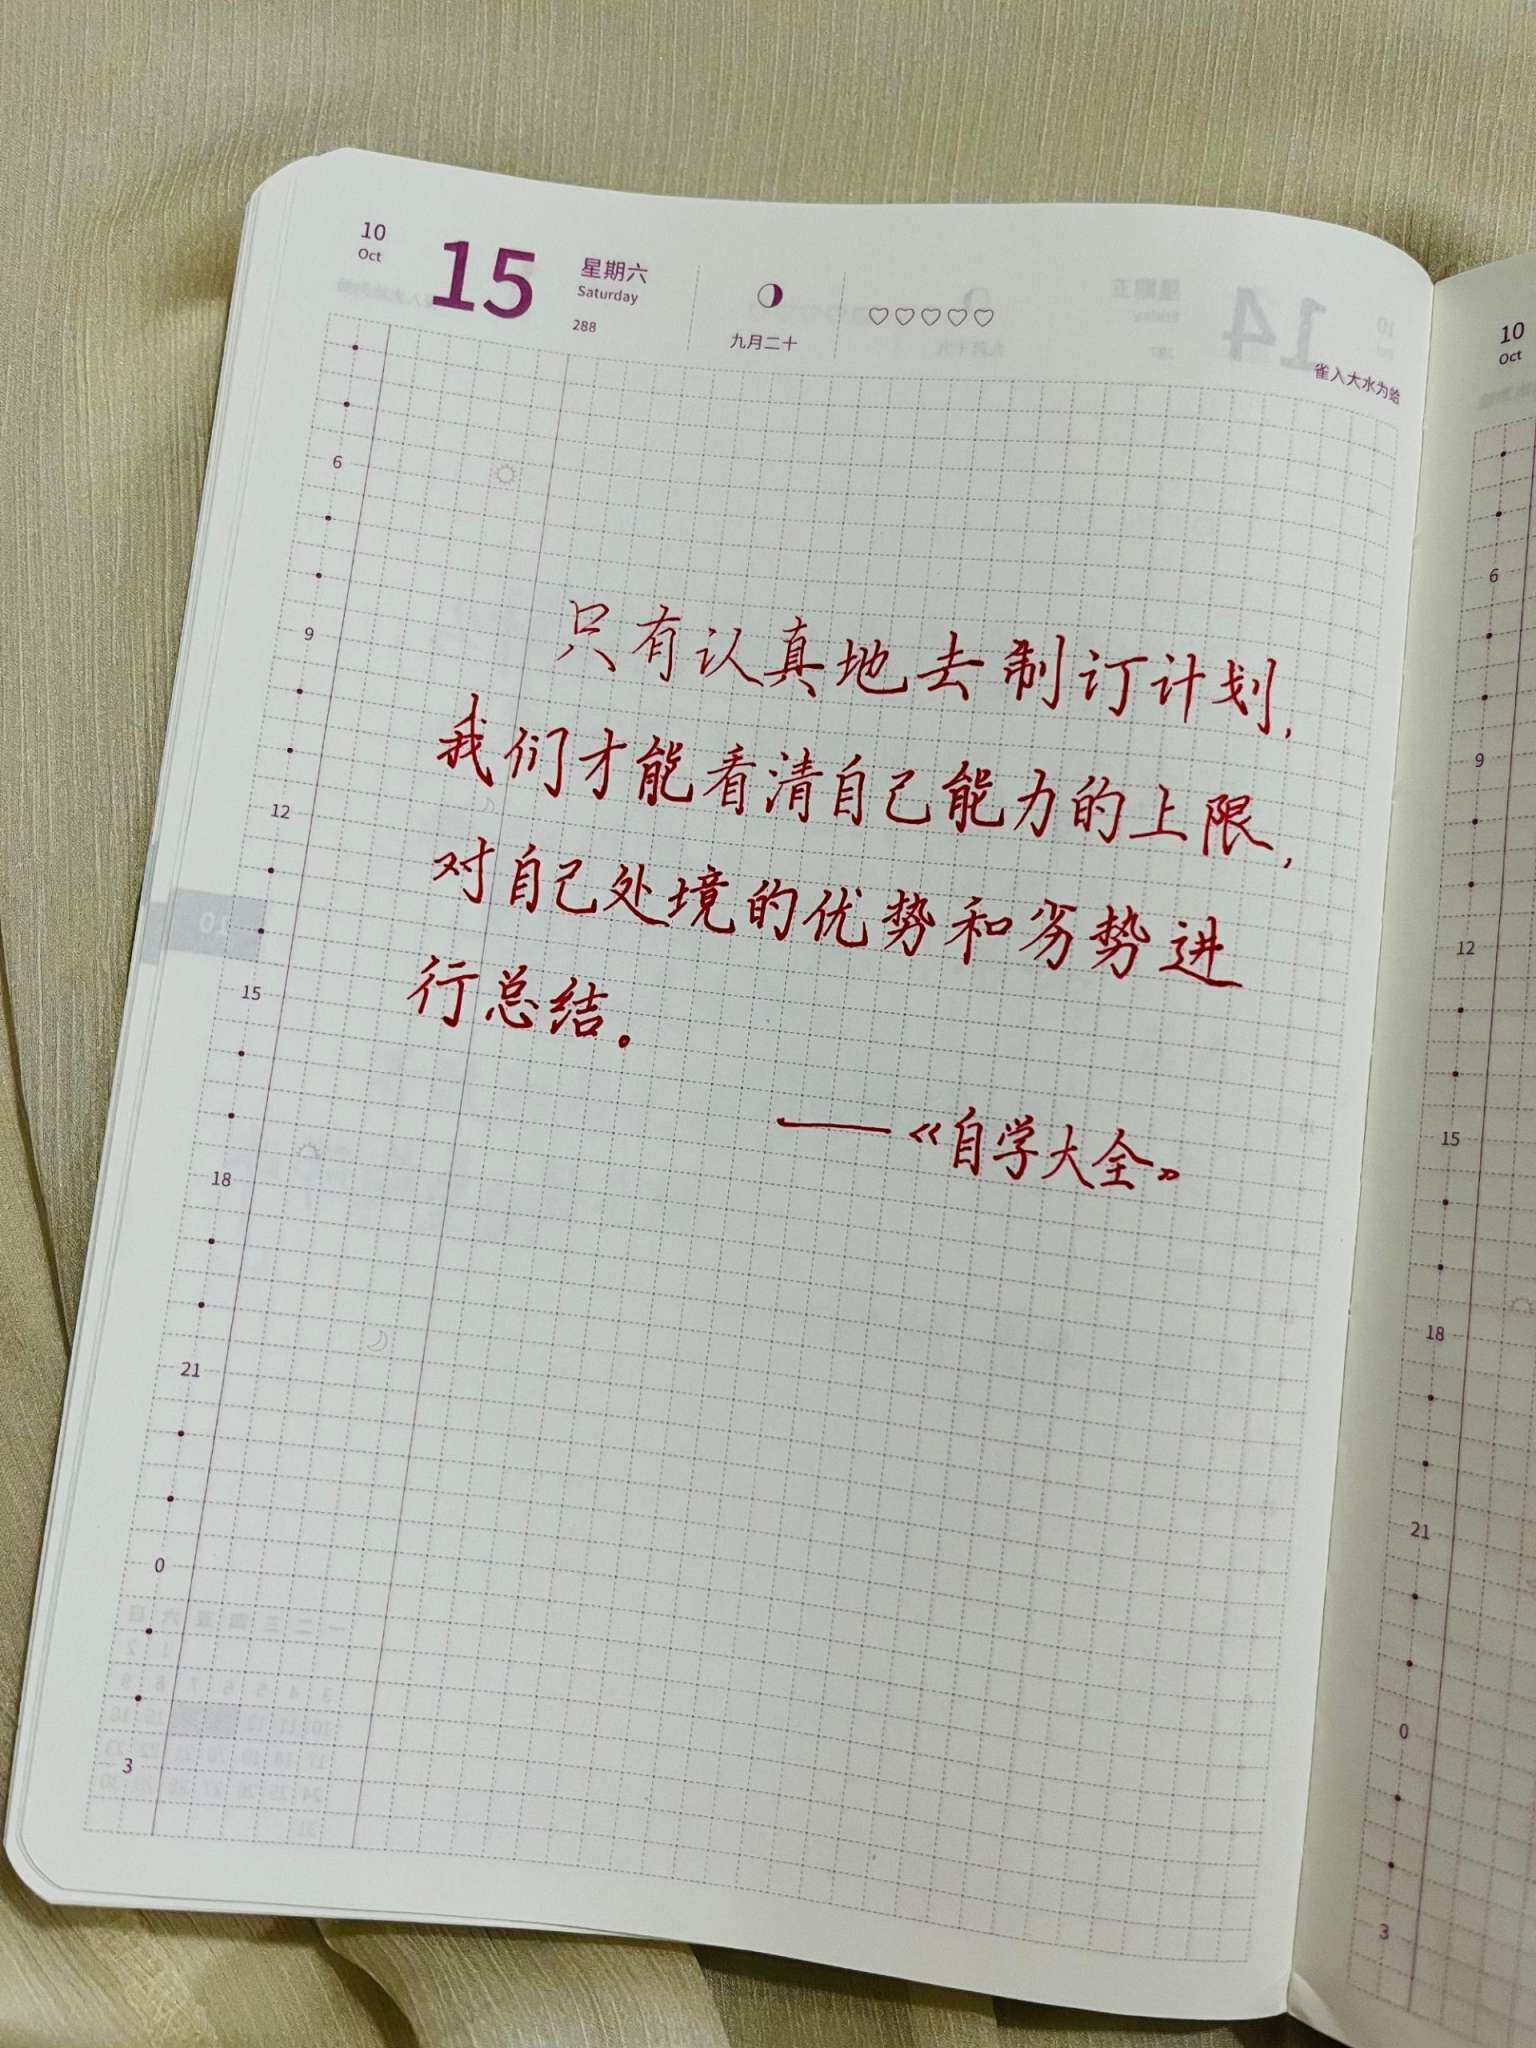 10
Oct
15
星期六
Saturday
288
九月二十
雀入大水为蛤
只有认真地去制订计划，
我们才能看清自己能力的上限，
对自己处境的优势和劣势进
行总结。
——《自学大全》
6
9
12
15
18
21
0
3
10
Oct
6
9
12
15
18
21
0
3